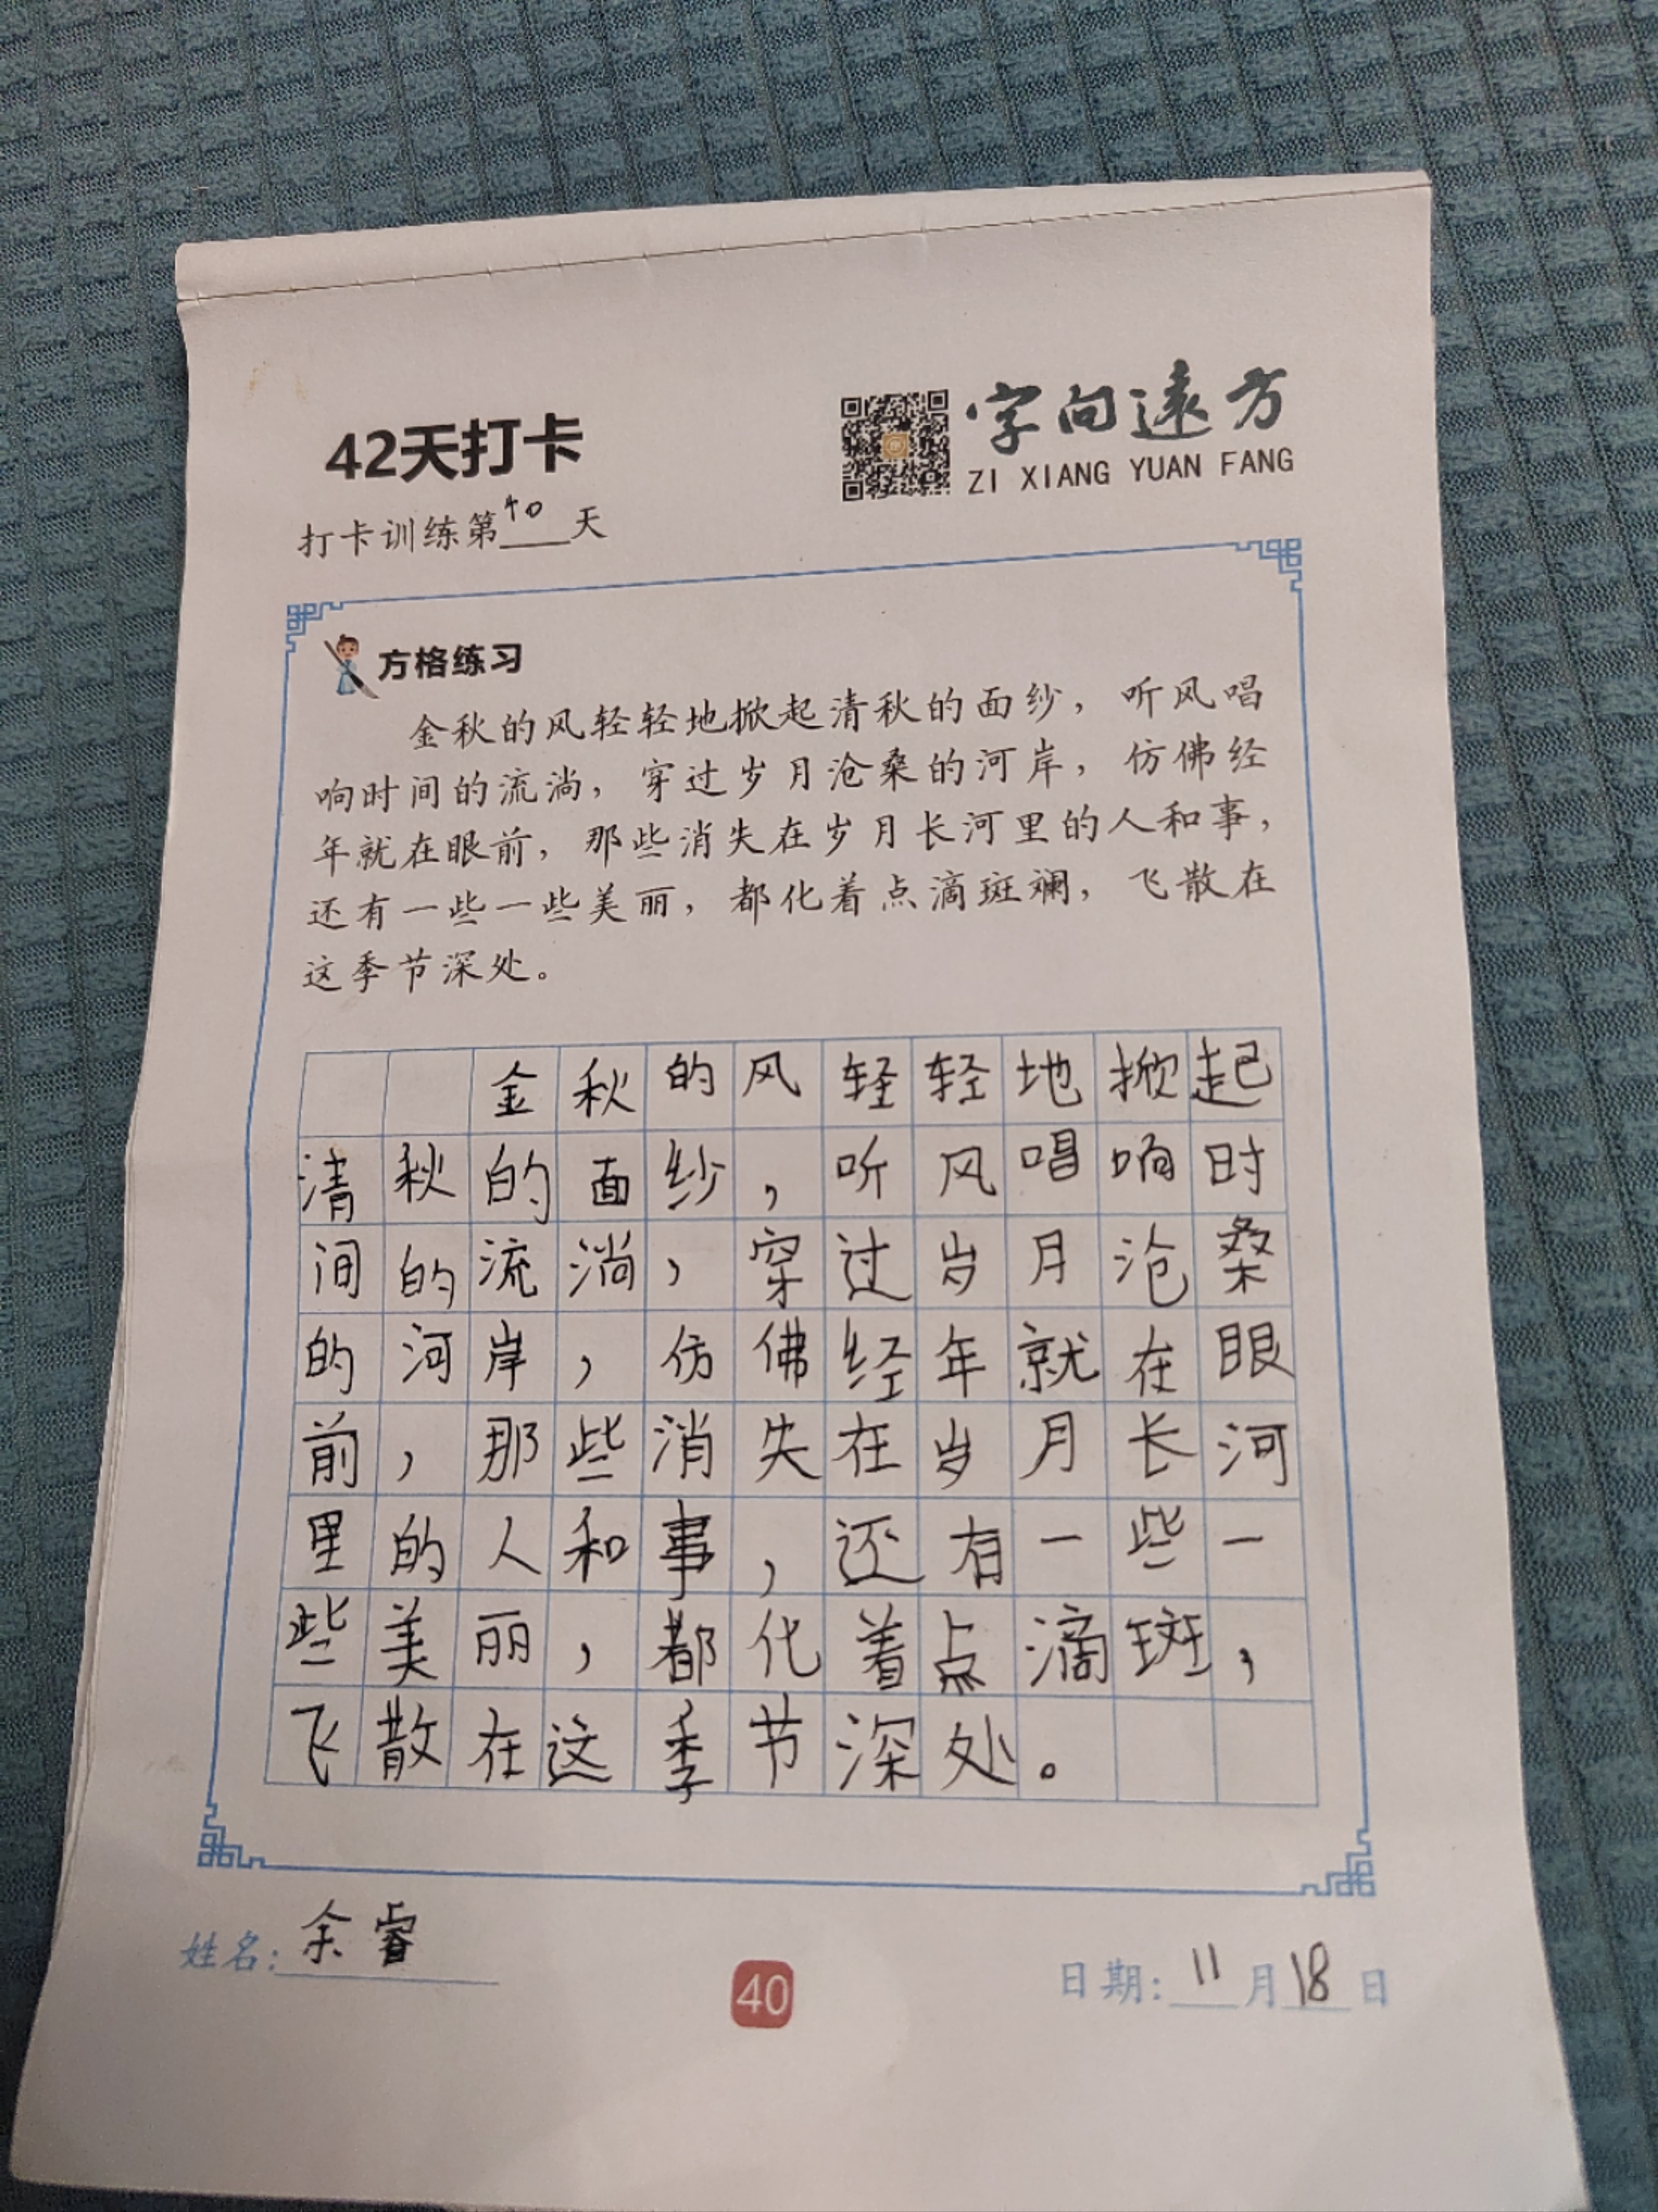 42天打卡
字向远方
ZI XIANG YUAN FANG
打卡训练第40天
方格练习
金秋的风轻轻地掀起清秋的面纱，听风唱
响时间的流淌，穿过岁月沧桑的河岸，仿佛经
年就在眼前，那些消失在岁月长河里的人和事，
还有一些一些美丽，都化着点滴斑斓，飞散在
这季节深处。
金秋的风轻轻地掀起
清秋的面纱，听风唱响时
间的流淌，穿过岁月沧桑
的河岸，仿佛经年就在眼
前，那些消失在岁月长河
里的人和事，还有一些一
些美丽，都化着点滴斑，
飞散在这季节深处。
姓名：余睿
40
日期：11月18日